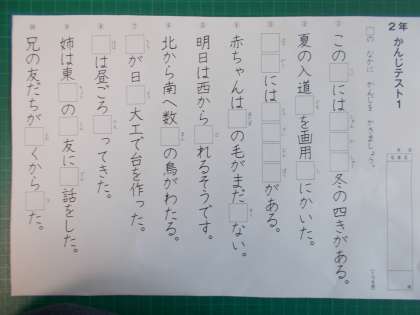 2年 かんじテスト1
□の なかに かんじを かきましょう。
① この□には□□□冬の四きがある。
② 夏の入道□を画用□にかいた。
③ □□には□□□がある。
④ 赤ちゃんは□の毛がまだ□ない。
⑤ 明日は西から□れるそうです。
⑥ 北から南へ数□の鳥がわたる。
⑦ □が日□大工で台を作った。
⑧ □は昼ごろ□ってきた。
⑨ 姉は東□の□友に□話をした。
⑩ 兄の友だちが□くから□た。